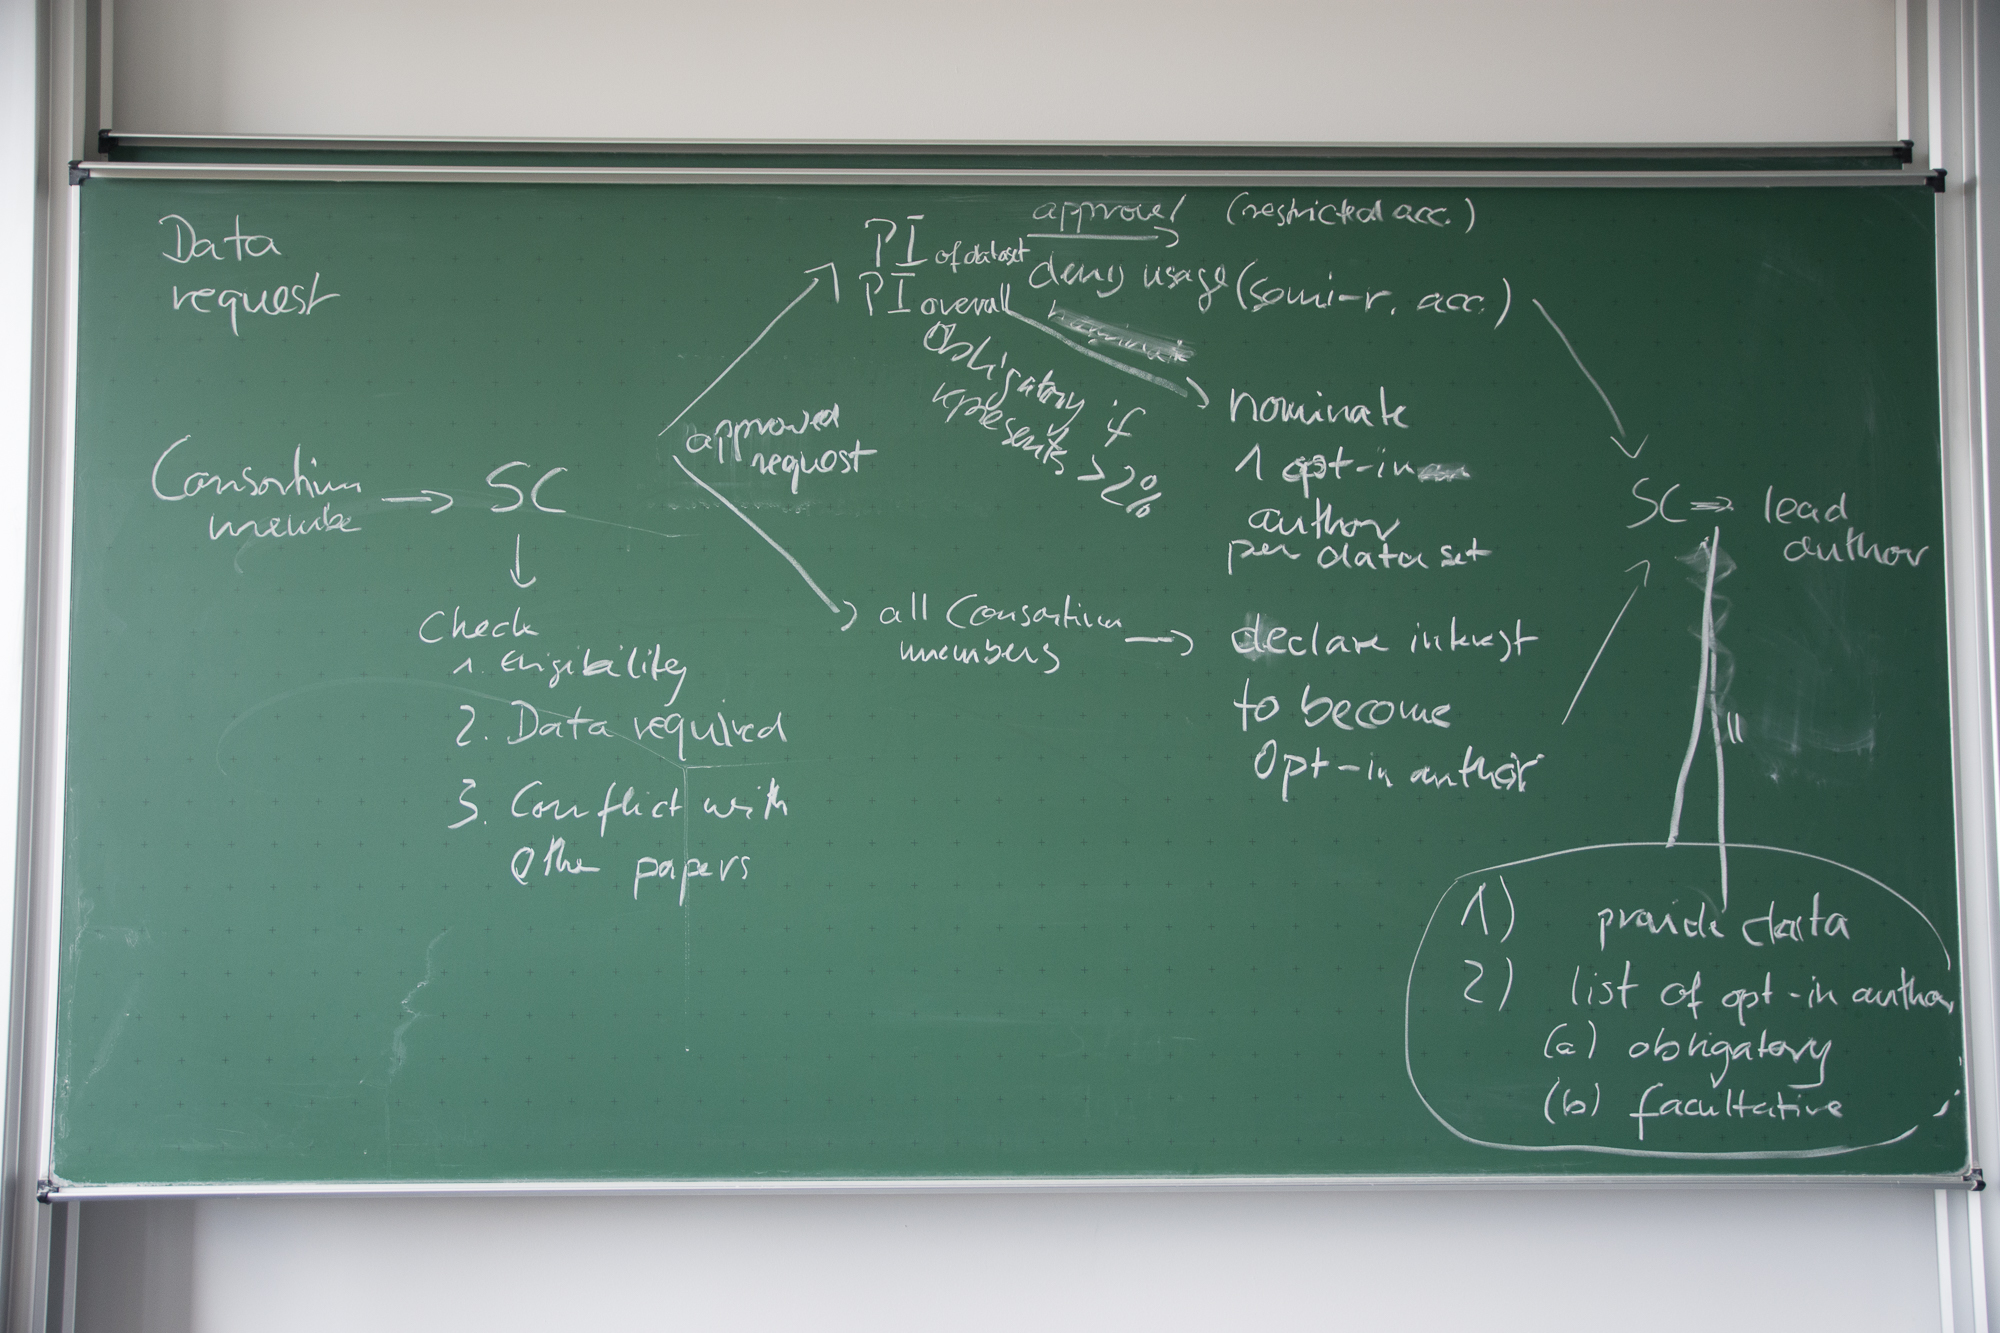 Data
request
Consortium
member
→ SC
↓
Check
1. Eligibility
2. Data required
3. Conflict with
other papers
approved
request
PI of dataset
PI overall
approval (restricted acc.)
deny usage (semi-r. acc.)
nominate
Obligatory if
represents >2%
nominate
1 opt-in
author
per data set
all Consortium
members
→ declare interest
to become
Opt-in author
SC ⇒ lead
author
1) provide data
2) list of opt-in author
(a) obligatory
(b) facultative